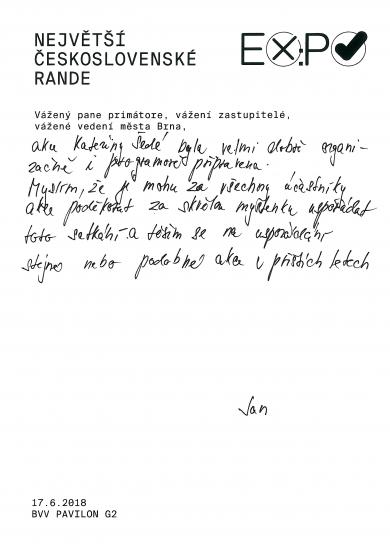 NEJVĚTŠÍ
ČESKOSLOVENSKÉ
RANDE
EX:PO
Vážený pane primátore, vážení zastupitelé,
vážené vedení města Brna,
akce Kateřiny Šedé byla velmi dobře organi-
začně i programově připravena.
Myslím, že jí mohu za všechny účastníky
akce poděkovat za skvělou myšlenku uspořádat
toto setkání a těším se na uspořádání
stejné nebo podobné akce v příštích letech
Jan
17.6.2018
BVV PAVILON G2